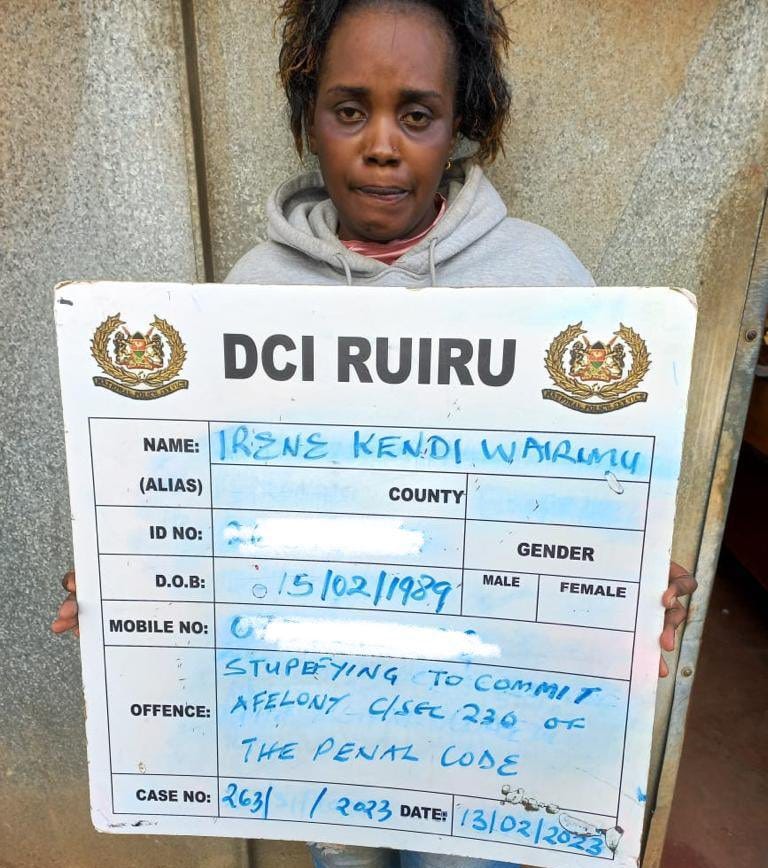 NATIONAL POLICE SERVICE
DCI RUIRU
NATIONAL POLICE SERVICE
NAME: IRENE KENDI WAIRIMU
(ALIAS) COUNTY
ID NO:
GENDER
D.O.B: 15/02/1989 MALE FEMALE
MOBILE NO: 07
OFFENCE: STUPEFYING TO COMMIT
AFELONY C/SEC 230 OF
THE PENAL CODE
CASE NO: 263/ / 2023 DATE: 13/02/2023